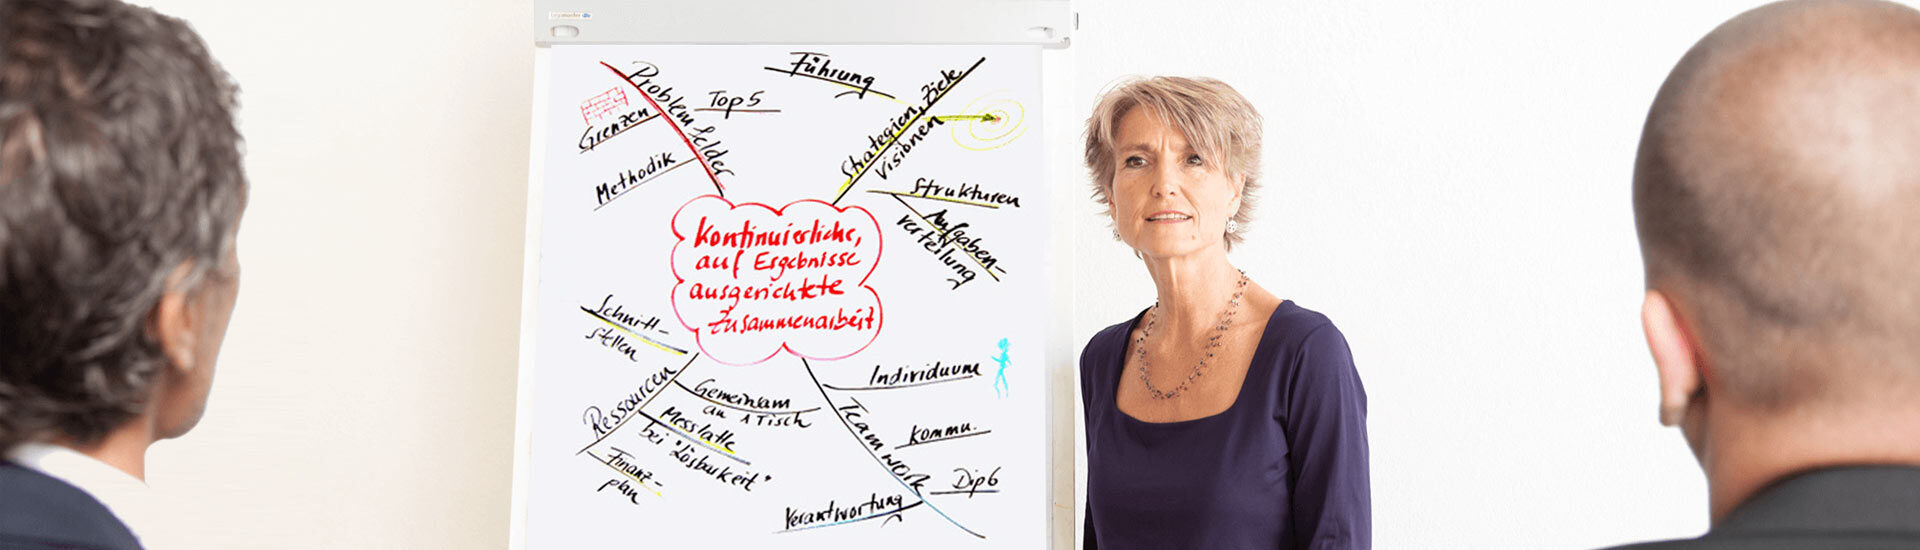 Problemfelder
Top 5
Grenzen
Methodik
Führung
Strategien, Ziele
Visionen
Strukturen
Aufgaben-
verteilung
Kontinuierliche,
auf Ergebnisse
ausgerichtete
Zusammenarbeit
Schnitt-
stellen
Ressourcen
Gemeinsam
an 1 Tisch
Messlatte
bei "Lösbarkeit"
Finanz-
plan
Teamwork
Individuum
Kommu.
Dip6
Verantwortung